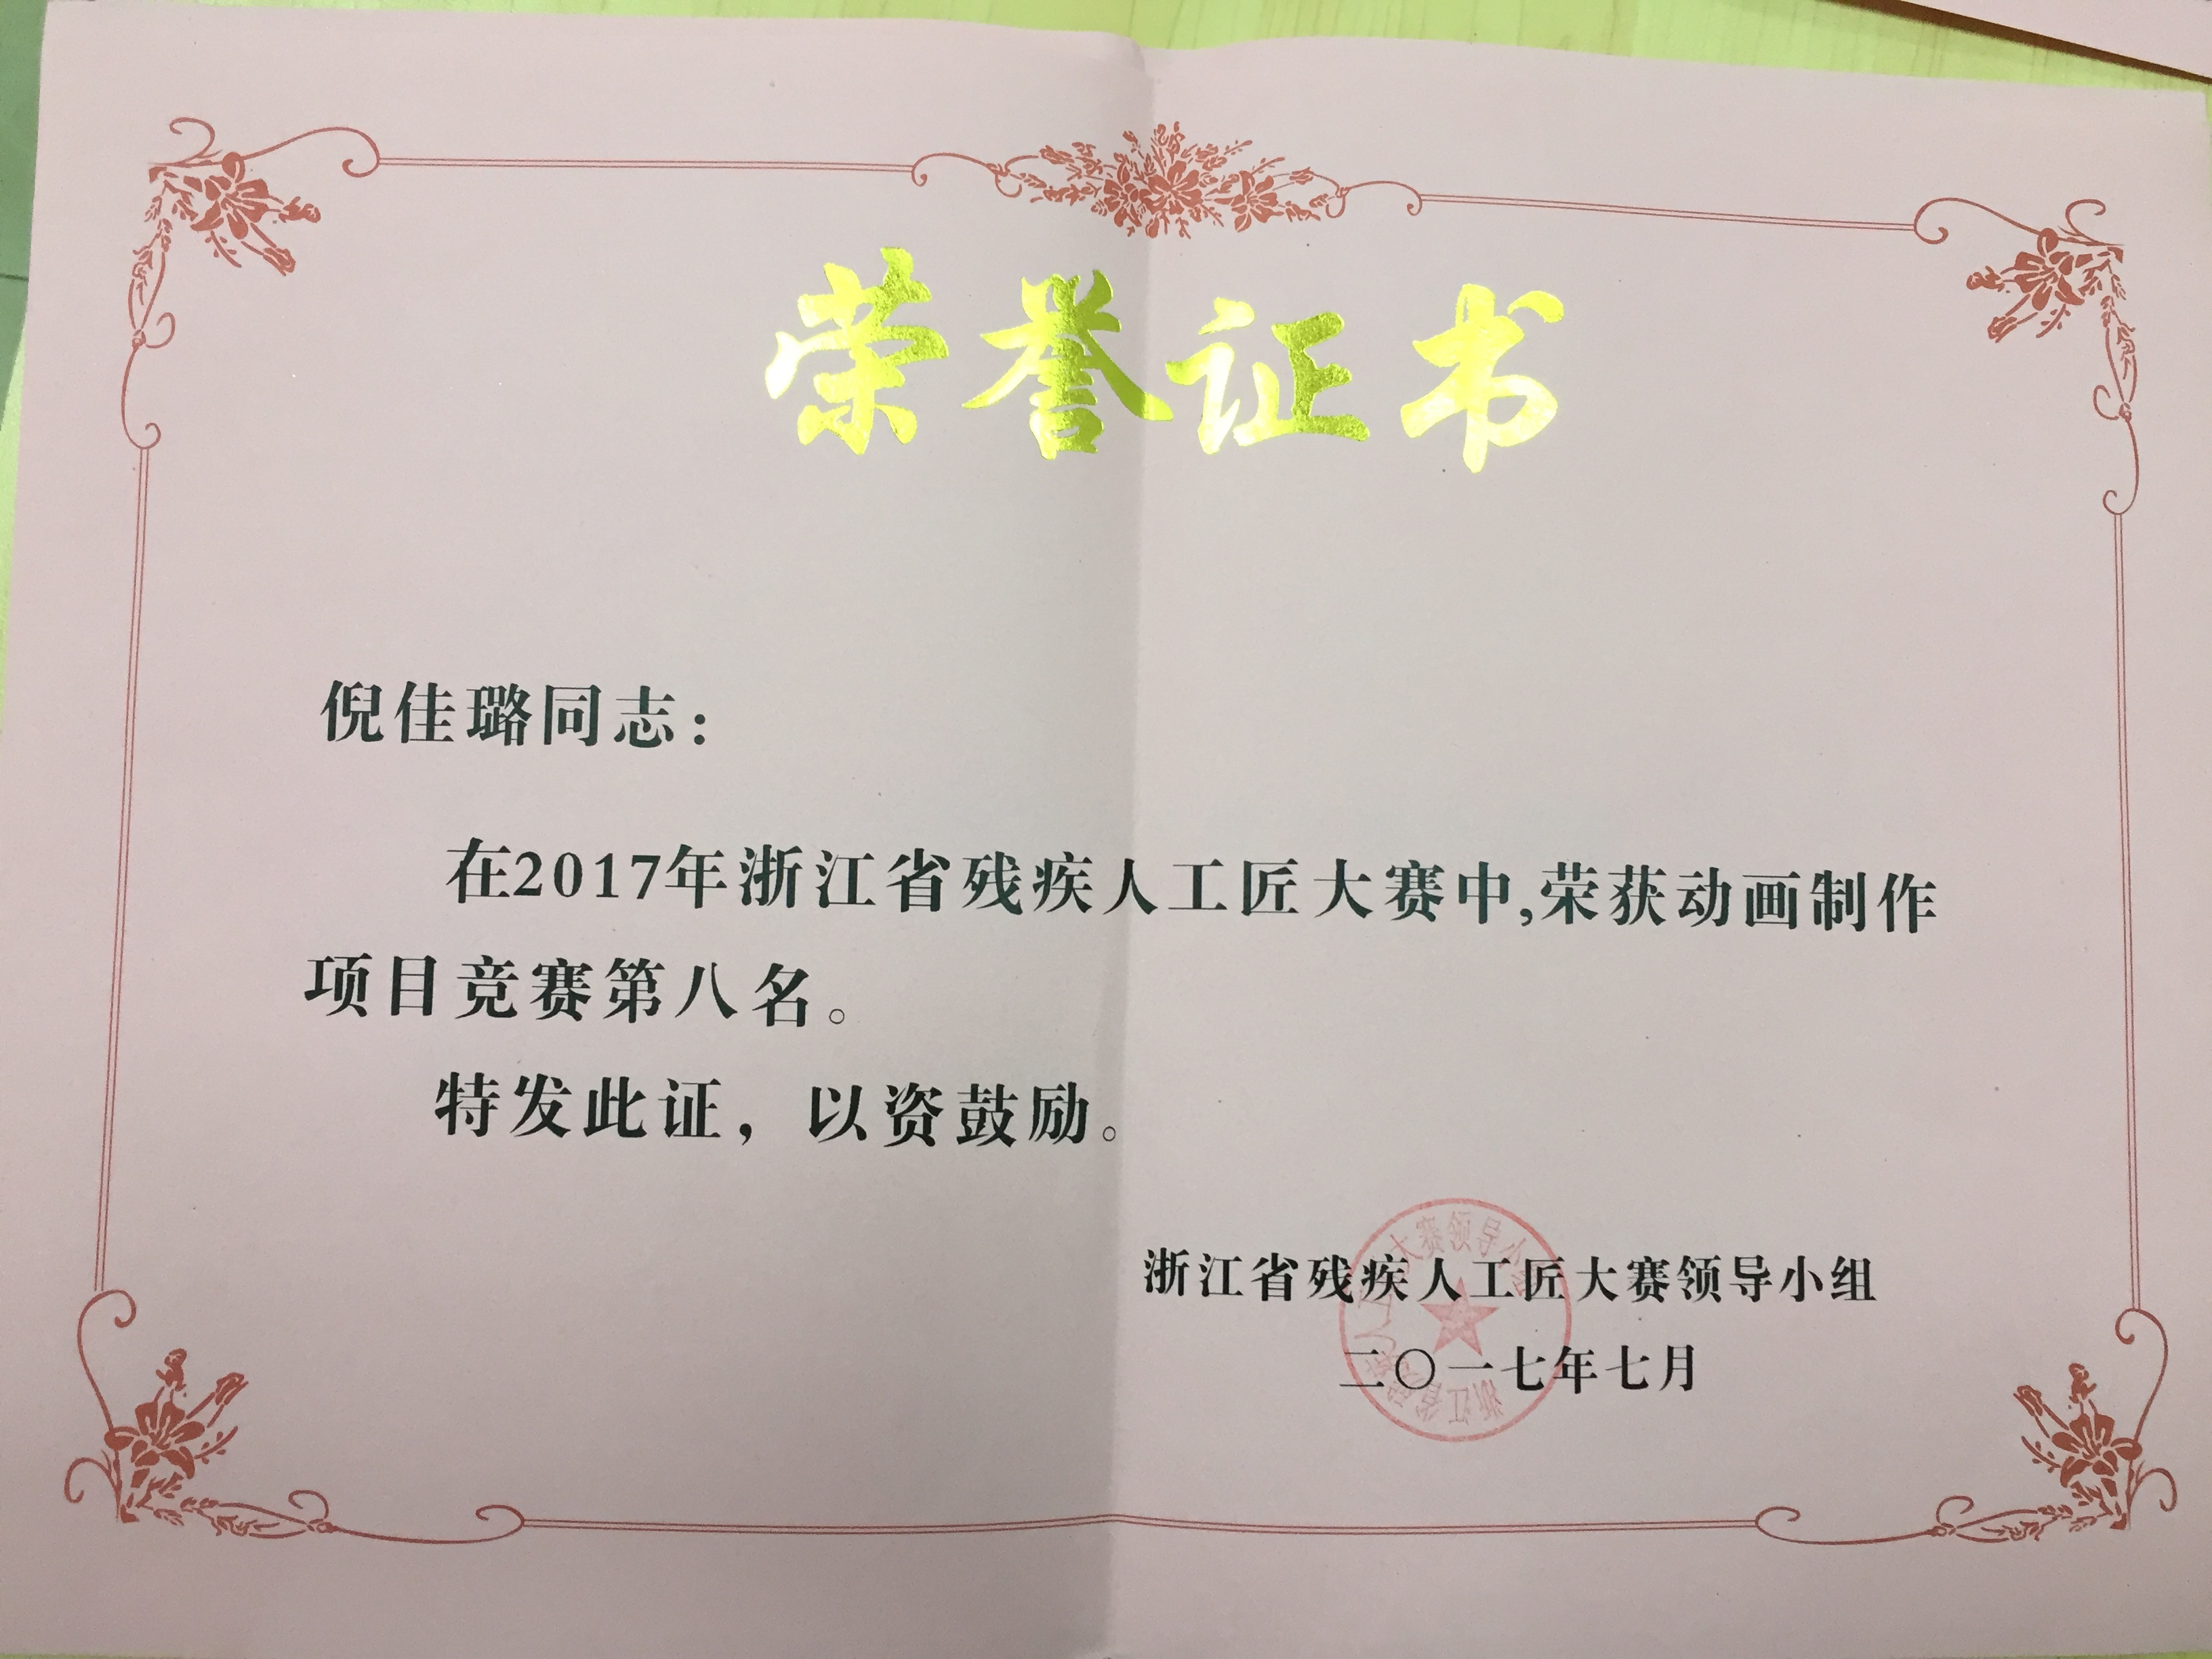 荣誉证书
倪佳璐同志：
在2017年浙江省残疾人工匠大赛中,荣获动画制作
项目竞赛第八名。
特发此证，以资鼓励。
浙江省残疾人工匠大赛领导小组
二〇一七年七月
浙江省残疾人工匠大赛领导小组